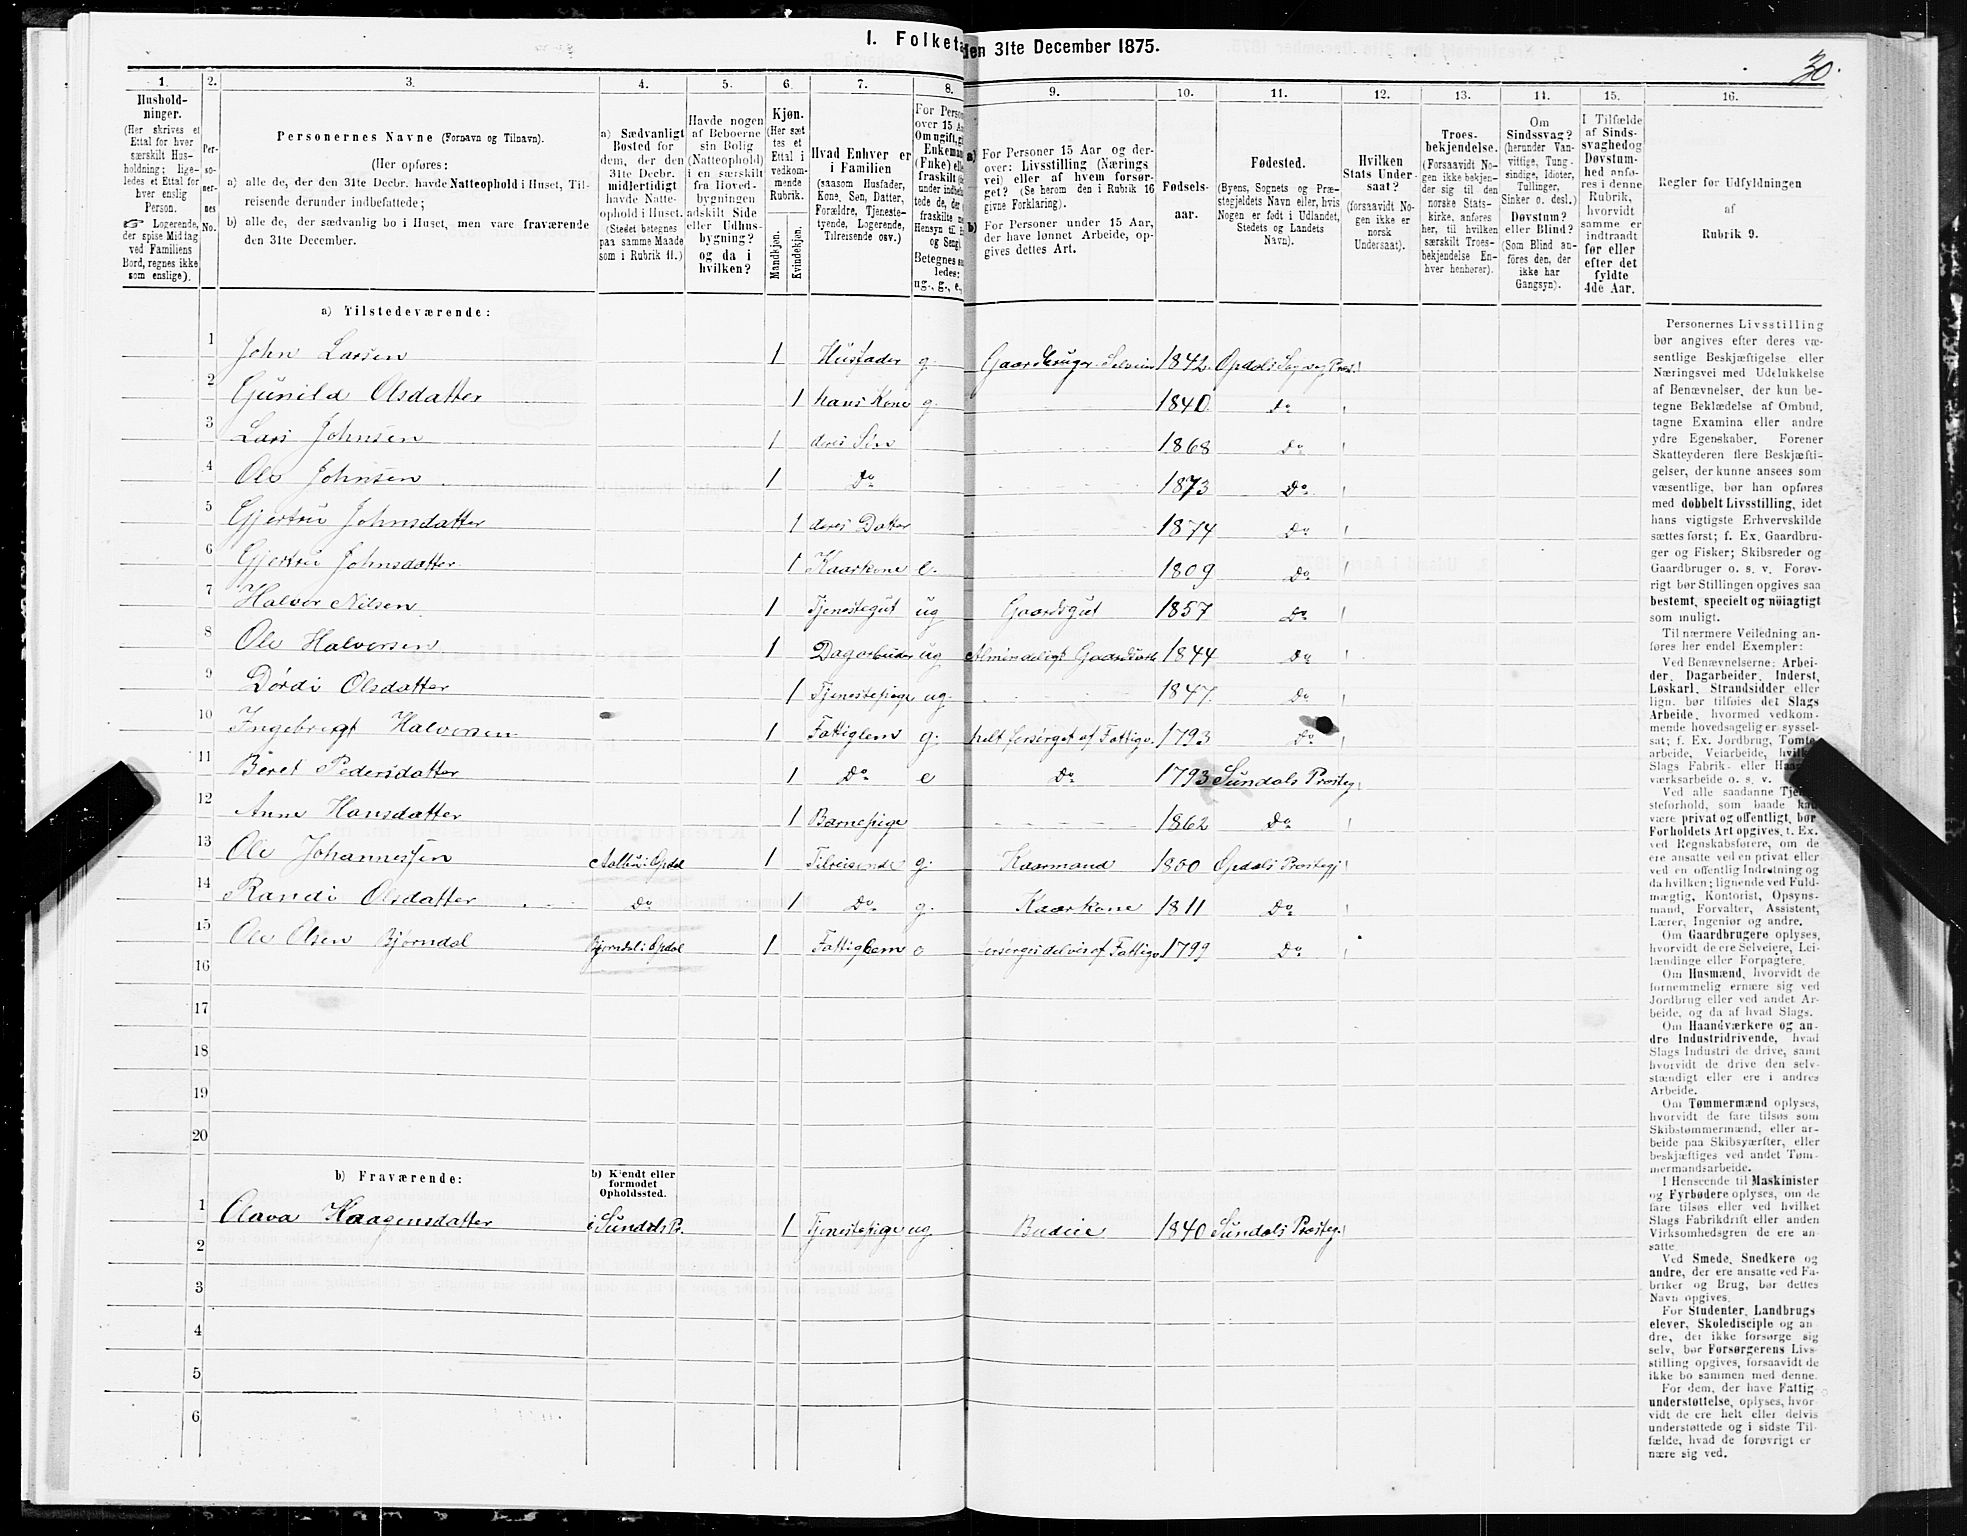 I. Folketa
den 31te December 1875.
30.
1. 2. 3. 4. 5. 6. 7. 8. 9. 10. 11. 12. 13. 14. 15. 16.
Hushold-
ninger.
(Her skrives et
Ettal for hver
særskilt Hus-
holdning; lige-
ledes et Ettal for
hver enslig
Person.
☞ Logerende,
der spise Middag
ved Familiens
Bord, regnes ikke
som enslige).
Per-
so-
ner-
nes
No.
Personernes Navne (Fornavn og Tilnavn).
(Her opføres:
a) alle de, der den 31te Decbr. havde Natteophold i Huset, Til-
reisende derunder indbefattede;
b) alle de, der sædvanlig bo i Huset, men vare fraværende
den 31te December.
a) Sædvanligt
Bosted for
dem, der den
31te Decbr.
midlertidigt
havde Natte-
ophold i Huset.
(Stedet betegnes
paa samme Maade
som i Rubrik 11.)
Havde nogen
af Beboerne
sin Bolig
(Natteophold)
i en særskilt
fra Hoved-
bygningen
adskilt Side
eller Udhus-
bygning?
og da i
hvilken?
Kjøn.
(Her sæt
tes et
Ettal i
vedkom-
mende
Rubrik.
Mandkjøn.
Kvindekjøn.
Hvad Enhver er
i Familien
(saasom Husfader,
Kone, Søn, Datter,
Forældre, Tjeneste-
tyende, Logerende,
Tilreisende osv.)
For Person
over 15 Aa
Om ugift, gi
Enkemand
(Enke) elle
fraskilt
under indbe
tede de, der
fraskilte
Hensyn til
og Seng).
Betegnes
ledes:
ug., g., e.,
a) For Personer 15 Aar og der-
over: Livsstilling (Nærings
vei) eller af hvem forsør-
get? (Se herom den i Rubrik 16
givne Forklaring).
b) For Personer under 15 Aar,
der have lønnet Arbeide, op-
gives dettes Art.
Fødsels-
aar.
Fødested.
(Byens, Sognets og Præ-
stegjeldets Navn eller, hvis
Nogen er født i Udlandet,
Stedets og Landets
Navn).
Hvilken
Stats Under-
saat?
(forsaavidt No-
gen ikke er
norsk
Undersaat).
Troes-
bekjendelse.
(Forsaavidt No-
gen ikke bekjen-
der sig til den
norske Stats-
kirke, anføres
her, til hvilken
særskilt Troes-
bekjendelse En-
hver henhører).
Om
Sindssvag?
(herunder Van-
vittige, Tung-
sindige, Idioter,
Tullinger,
Sinker o. desl.)
Døvstum?
eller Blind?
(Som Blind an-
føres den, der
ikke har
Gangsyn).
I Tilfælde
af Sinds-
svaghed og
Døvstum-
hed anfø-
res i denne
Rubrik,
hvorvidt
samme er
indtraadt
før eller
efter det
fyldte
4de Aar.
Regler før Udfyldningen
af
Rubrik 9.
a) Tilstedeværende:
1 John Larsen 1 Husfader g. Gaardbruger Selveier 1842. Opdals Sogn og Præst.
2 Gunild Olsdatter 1 hans Kone g. 1840. Do
3 Lars Johnsen 1 deres Søn 1868 Do
4 Ole Johnsen 1 Do 1873 Do
5 Gjertru Johnsdatter 1 deres Datter 1874 Do
6 Gjertru Johnsdatter 1 Kaarkone e. 1809 Do
7 Halvor Nilsen 1 Tjenestegut ug Gaardsgut 1857 Do
8 Ole Halvorsen 1 Dagarbeider ug Almindeligt Gaardsarb 1844 Do
9 Dordi Olsdatter 1 Tjenestepige ug. 1847. Do
10 Ingebrigt Halvorsen 1 Fattiglem g. helt forsørget af Fattigv. 1793 Do
11 Beret Pedersdatter 1 Do e Do 1793 Sundals Præsteg
12 Anne Hansdatter 1 Barnepige 1862 Do
13 Ole Johannessen Aalbu i Opdal 1 Tilreisende g. Kaarmand 1800 Opdals Præstegj
14 Randi Olsdatter Do 1 Do g. Kaarkone 1811 Do
15 Ole Olsen Bjørndal Bjørndal i Opdal 1 Fattiglem e forsørges delvis af Fattigv 1799 Do
16
17
18
19
20
b) Fraværende:
b) Kjendt eller
formodet
Opholdssted.
1 Olava Haagensdatter i Sundals Pr. 1 Tjenestepige ug Budeie 1840 Sundals Præsteg.
2
3
4
5
6
Personernes Livsstilling
bør angives efter deres væ-
sentlige Beskjæftigelse eller
Næringsvei med Udelukkelse
af Benævnelser, der kun be-
tegne Beklædelse af Ombud,
tagne Examina eller andre
ydre Egenskaber. Forener
Skatteyderen flere Beskjæfti-
gelser, der kunne ansees som
væsentlige, bør han opføres
med dobbelt Livsstilling, idet
hans vigtigste Erhvervskilde
sættes først; f. Ex. Gaardbru-
ger og Fisker; Skibsreder og
Gaardbruger o. s. v. Forøv-
rigt bør Stillingen opgives saa
bestemt, specielt og nøiagtigt
som muligt.
Til nærmere Veiledning an-
føres her endel Exempler:
Ved Benævnelserne: Arbei-
der, Dagarbeider, Inderst,
Løskarl, Strandsidder eller
lign. bør tilføies det Slags
Arbeide, hvormed vedkom-
mende hovedsagelig er syssel-
sat; f. Ex. Jordbrug, Tømte-
arbeide, Veiarbeide, hvilket
Slags Fabrik- eller Haand-
værksarbeide o. s. v.
Ved alle saadanne Tjene-
steforhold, som baade kan
være privat og offentligt, bør
Forholdets Art opgives, t. Ex.
ved Regnskabsførere, om de
ere ansatte ved en privat eller
ved en offentlig Indretning og
da hvilken; lignende ved Fuld-
mægtig, Kontorist, Opsyns-
mand, Forvalter, Assistent,
Lærer, Ingeniør og andre.
Om Gaardbrugere oplyses,
hvorvidt de ere Selveiere, Lei-
lændinge eller Forpagtere.
Om Husmænd, hvorvidt de
fornemmelig ernære sig ved
Jordbrug eller ved andet Ar-
beide, og da af hvad Slags.
Om Haandværkere og an-
dre Industridrivende, hvad
Slags Industri de drive, samt
hvorvidt de drive den selv-
stændigt eller ere i andres
Arbeide.
Om Tømmermænd oplyses,
hvorvidt de fare tilsøs som
Skibstømmermænd, eller ar-
beide paa Skibsværfter, eller
beskjæftiges ved andet Tøm-
mermandsarbeide.
I Henseende til Maskinister
og Fyrbødere oplyses, om de
fare tilsøs eller ved hvilket
Slags Fabrikdrift eller anden
Virksomhedsgren de ere an-
satte.
Ved Smede, Snedkere og
andre, der ere ansatte ved Fa-
briker og Brug, bør dettes
Navn opgives.
For Studenter, Landbrugs
elever, Skoledisciple og an
dre, der ikke forsørge sig
selv, bør Forsørgerens Livs-
stilling opgives, forsaavidt de
ikke bo sammen med denne.
For dem, der have Fattig
understøttelse, oplyses, hvor-
vidt de ere helt eller delvis
understøttede og i sidste Til-
fælde, hvad de forøvrigt er
nære sig ved.